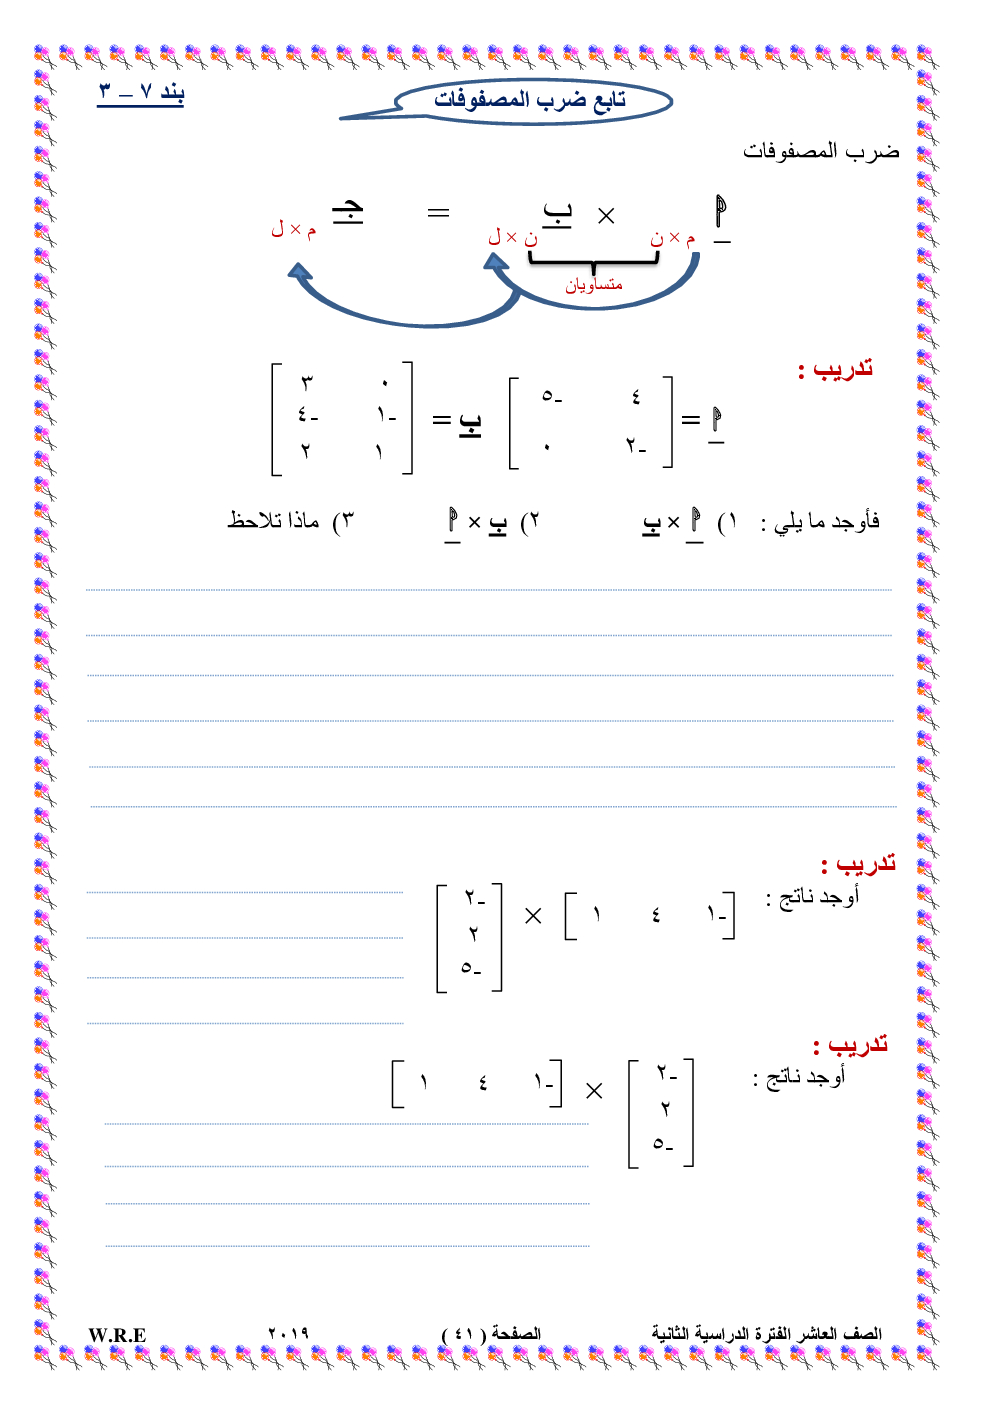 بند ٧ – ٣
تابع ضرب المصفوفات
ضرب المصفوفات
أ × ب = جـ
م × ن ن × ل م × ل
متساويان
تدريب :
أ = [ ٤ -٥ ب = [ ٠ ٣
-٢ ٠ ] -١ -٤
١ ٢ ]
فأوجد ما يلي : ١) أ × ب ٢) ب × أ ٣) ماذا تلاحظ
تدريب :
أوجد ناتج : [ -١ ٤ ١ ] × [ -٢
٢
-٥ ]
تدريب :
أوجد ناتج : [ -٢ × [ -١ ٤ ١ ]
٢
-٥ ]
الصف العاشر الفترة الدراسية الثانية الصفحة ( ٤١ ) ٢٠١٩ W.R.E